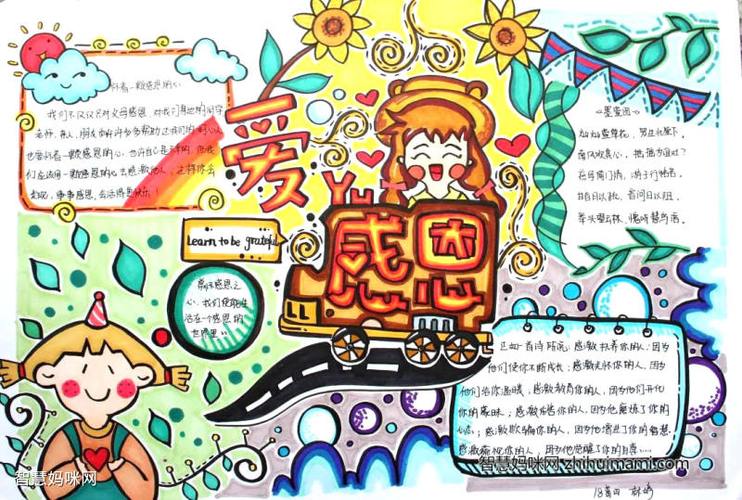 怀着一颗感恩的心
我们不仅仅对父母感恩，对我们身边的同学
老师，亲人，朋友和许多多帮助过我们的好心人
也要怀着一颗感恩的心。
们应该用一颗感恩的心去感恩他人，这样你会
感恩，会活得更快乐！
爱
Yu
感恩
Learn to be grateful
常怀感恩之
心，我们便能生
活在一个感恩的
世界里。
《墨萱图》
灿灿萱草花，罗生北堂下。
南风吹其心，摇摇为谁吐？
慈母倚门情，游子行路苦。
甘旨日以疏，音问日以阻。
举头望云林，愧听慧鸟语。
正如一首诗所说：感激抚养你的人，因为
他们使你不断成长；感激关怀你的人，因为
他们给你温暖；感激教育你的人，因为他们开化
你的蒙昧；感激伤害你的人，因为他磨练了你的
心志；感激欺骗你的人，因为他增进了你的智慧
感激藐视你的人，因为他觉醒了你的自尊……
智慧妈咪网
智慧妈咪网 zhihuimami.com